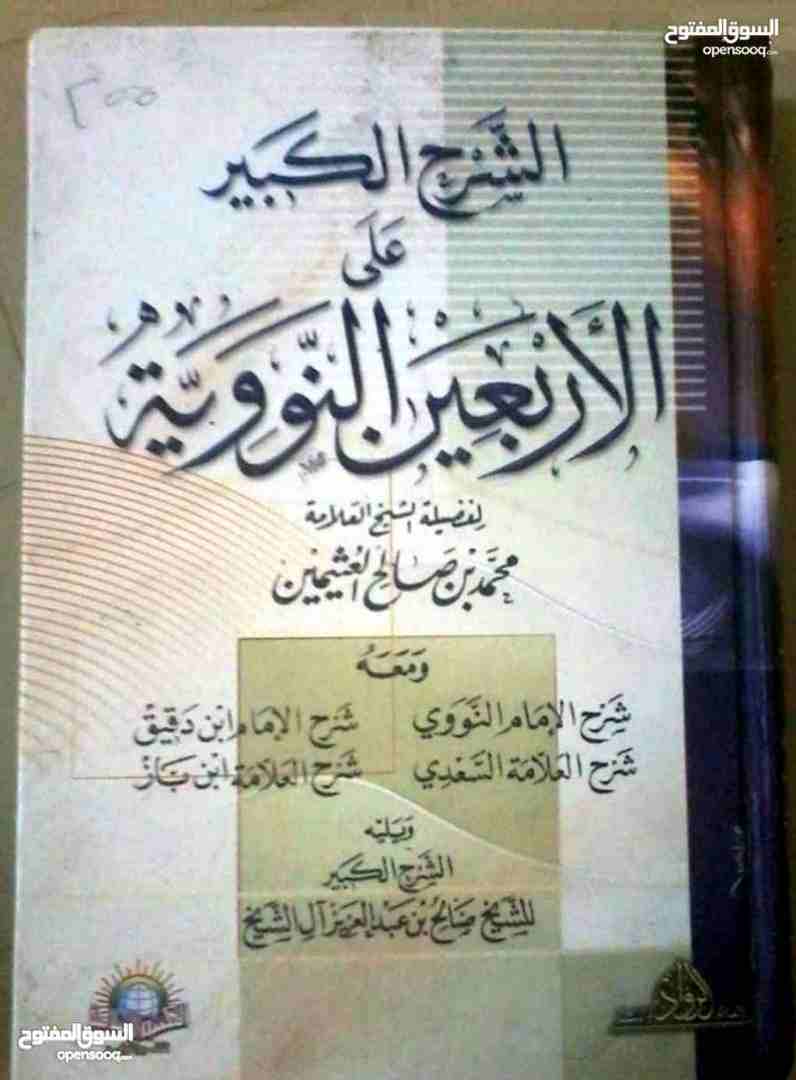 السوق المفتوح
opensooq.com
٢٠٠
الشَّرح الكبير
عَلَى
الأَرْبَعِين النَّوَوِيَّة
لفضيلة الشيخ العلامة
محمَّد بْن صَالح العُثيمين
وَمَعَهُ
شَرْح الإمَام النَّوَوي شَرْح الإمَام ابْن دَقيق
شَرْح العَلّامَة السَّعْدي شَرْح العَلّامَة ابْن بَاز
وَيَليه
الشَّرْح الكَبير
للشَّيْخ صَالح بْن عَبد العَزيز آل الشَّيْخ
السوق المفتوح
opensooq.com